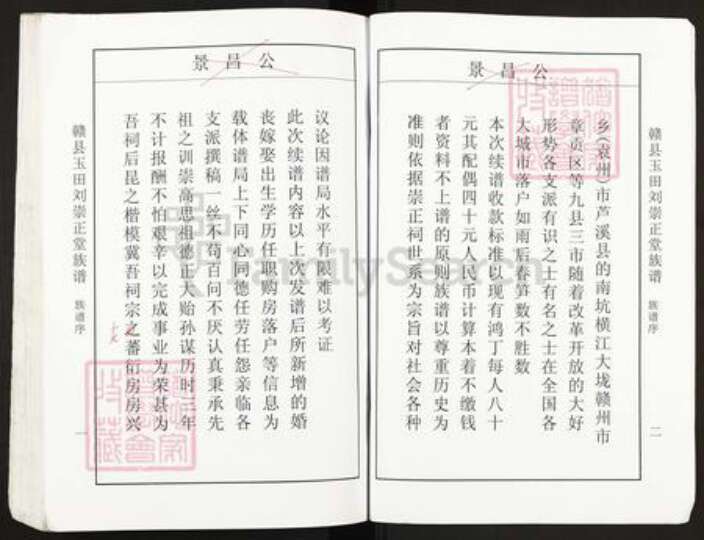 赣县玉田刘崇正堂族谱
族谱序
二
景昌公
乡(袁州)市芦溪县的南坑横江大垅赣州市
章贡区等九县三市随着改革开放的大好
形势各支派有识之士有名之士在全国各
大城市落户如雨后春笋数不胜数
本次续谱收款标准以现有鸿丁每人八十
元其配偶四十元人民币计算本着不缴钱
者资料不上谱的原则族谱以尊重历史为
准则依据崇正祠世系为宗旨对社会各种
景昌公
议论因谱局水平有限难以考证
此次续谱内容以上次发谱后所新增的婚
丧嫁娶出生学历任职购房落户等信息为
载体谱局上下同心同德任劳任怨亲临各
支派撰稿一丝不苟百问不厌认真秉承先
祖之训崇高思祖德正大贻孙谋历时三年
不计报酬不怕艰辛以完成事业为荣甚为
吾祠后昆之楷模冀吾祠宗之蕃衍房房兴
赣县玉田刘崇正堂族谱
族谱序
一
FamilySearch